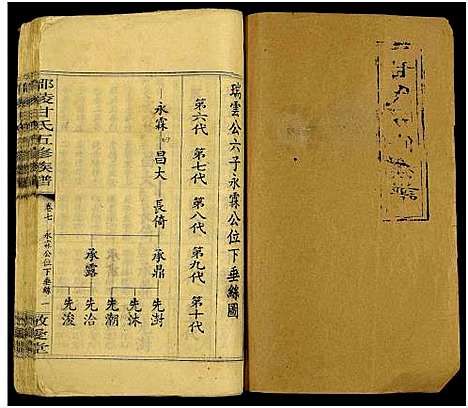 瑞雲公六子永霖公位下垂絲圖
第六代 第七代 第八代 第九代 第十代
永霖 昌大 長倚 承鼎 先澍
先沐
先潮
承露 先治
先浚
邵陵甘氏五修族譜
卷七 永霖公位下垂絲 一
敬愛堂